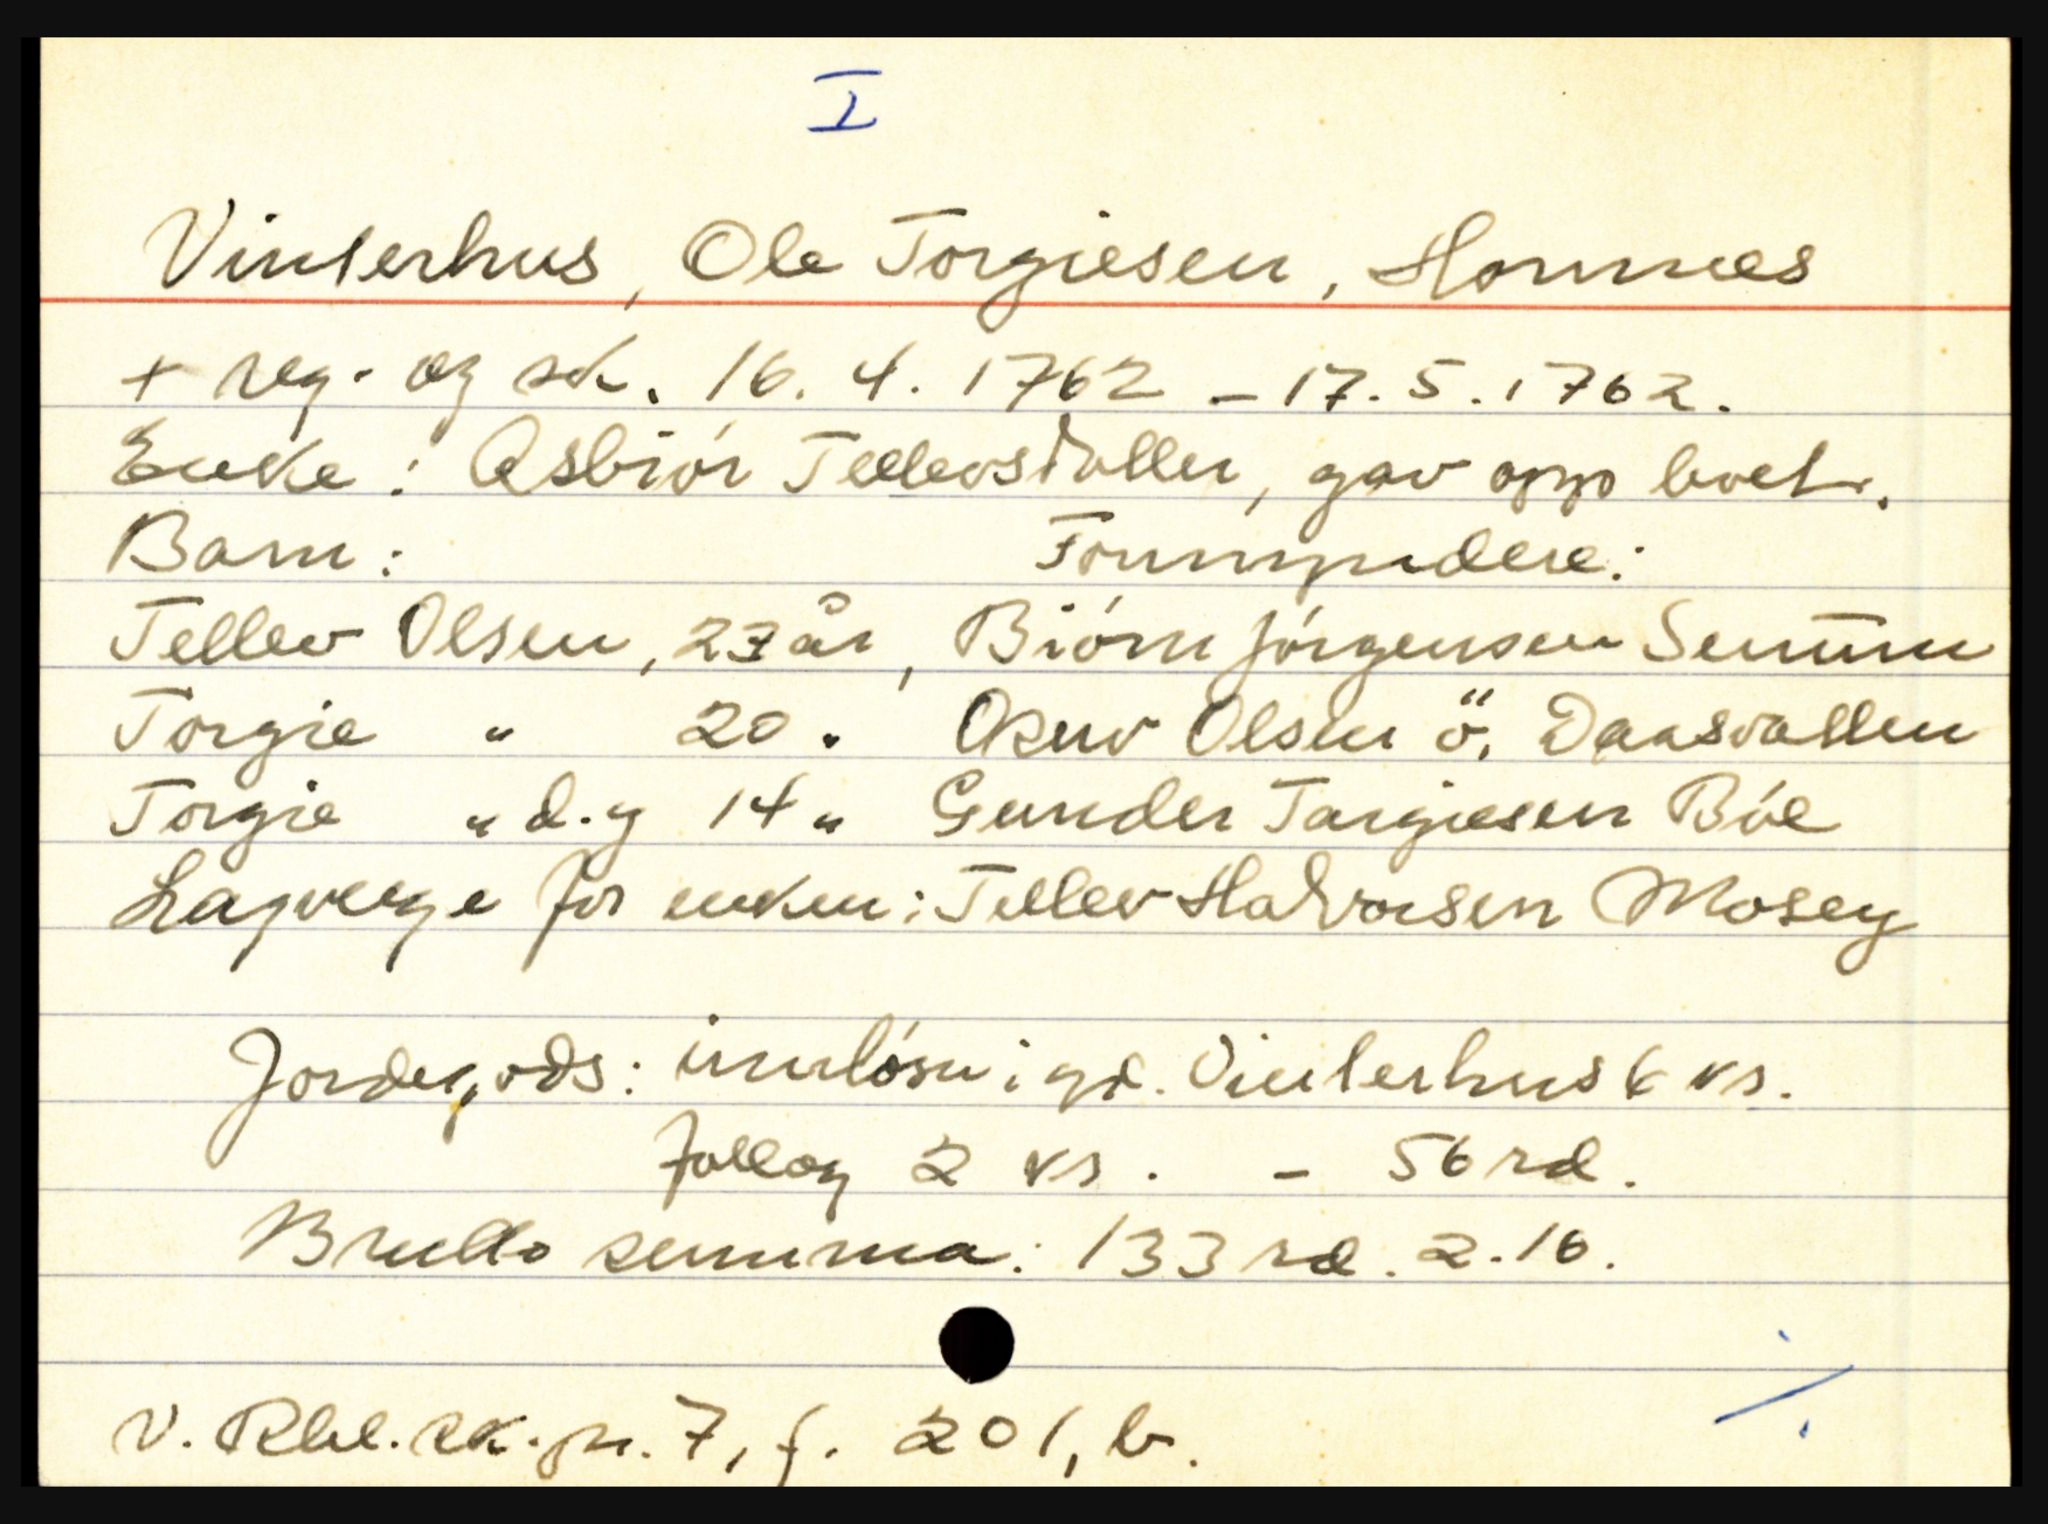 I
Vinterhus, Ole Torgiesen, Hornnes
+ reg. og sk. 16.4.1762 - 17.5.1762.
Enke: Asbiór Tellevsdatter, gav opp boet.
Barn: Formyndere:
Tellev Olsen, 23 år, Biórn Jórgensen Senum
Torgie " 20 " Asuv Olsen ö. Daasvatten
Torgie " d.y 14 " Gunder Targiesen Bóe
Lagverge for enken: Tellev Halvorsen Mosey
Jordegods: innlósn i gd. Vinterhus 6 ks.
2 ks. - 56 rd.
Brutto summa: 133 rd. 2.16.
V. Rbl. sk. pr. 7, f. 201, b.